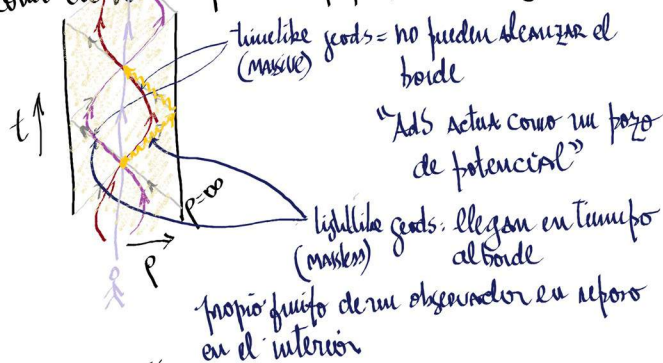 timelike geods = no pueden alcanzar el
(MASSIVE) borde
"AdS actua como un pozo
de potencial"
t
ρ=∞
ρ
lightlike geods: llegan en tiempo
(massless) al borde
propio finito de un observador en reposo
en el interior